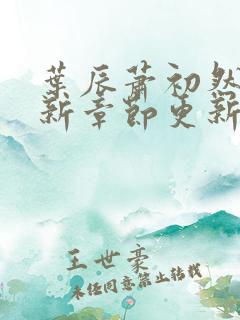 葉辰蕭初然
新章節更新
王世豪
未經同意禁止轉載